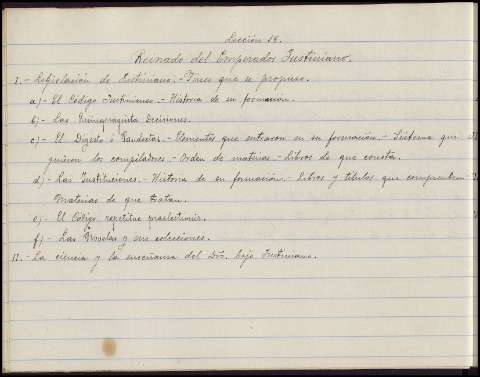 Lección 18.
Reinado del Emperador Justiniano.
I.- Legislación de Justiniano.- Fines que se propuso.
a)- El Código Justinianeo.- Historia de su formación.
b)- Las Quinquaginta Decisiones.
c)- El Digesto ó Pandectas.- Elementos que entraron en su formación.- Sistema que
guieron los compiladores.- Orden de materias.- Libros de que consta.
d)- Las Instituciones.- Historia de su formación.- Libros y títulos que comprenden
Materias de que tratan.
e)- El Código repetitae praelectionis.
f)- Las Novelas y sus colecciones.
II.- La ciencia y la enseñanza del Dro. bajo Justiniano.